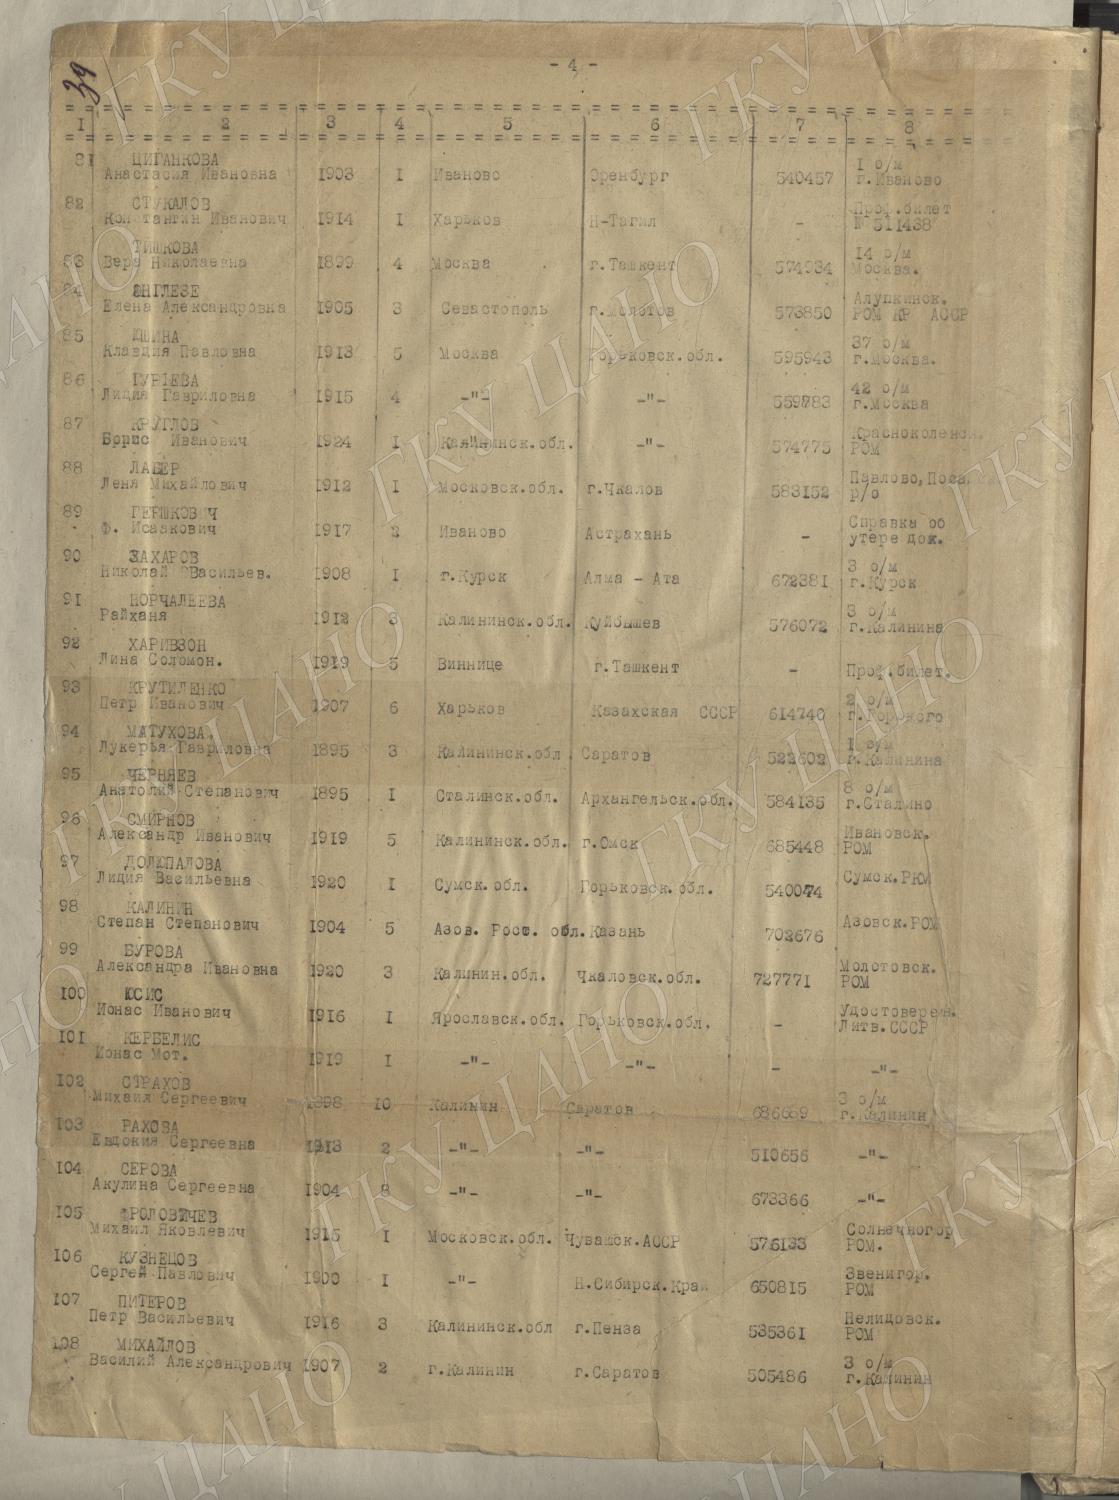 39
- 4 -
I 2 3 4 5 6 7 8
81 ЦИГАНКОВА
Анастасия Ивановна 1903 I Иваново Оренбург 540457 I о/м г.Иваново
82 СТУКАЛОВ
Константин Иванович 1914 I Харьков Н-Тагил - Проф.билет № 511438
ТИШКОВА
83 Вера Николаевна 1899 4 Москва г.Ташкент 574934 14 о/м Москва.
84 АНГЛЕЗЕ
Елена Александровна 1905 3 Севастополь г.Молотов 573850 Алупкинск. РОМ КР АССР
85 ЮШИНА
Клавдия Павловна 1913 5 Москва Горьковск.обл. 595943 37 о/м г.Москва.
86 ГУРЬЕВА
Лидия Гавриловна 1915 4 -"- -"- 559783 42 о/м г.Москва
87 КРУГЛОВ
Борис Иванович 1924 I Калининск.обл. -"- 574775 РОМ
88 ЛАБЕР
Леня Михайлович 1912 I Московск.обл. г.Чкалов 583152 Павлово, р/о
89 ГЕРШКОВИЧ
Ф. Исаакович 1917 2 Иваново Астрахань - Справка об утере док.
90 ЗАХАРОВ
Николай Васильев. 1908 I г.Курск Алма - Ата 672381 3 о/м г.Курск
91 НОРЧАЛЕЕВА
Райханя 1912 3 Калининск.обл. Куйбышев 576072 3 о/м г.Калинина
92 ХАРИВЗОН
Лина Соломон. 1919 5 Виннице г.Ташкент - Проф.билет.
93 КРУТИЛЕНКО
Петр Иванович 1907 6 Харьков Казахская СССР 614740 2 о/м г.Горького
94 МАТУХОВА.
Лукерья Гавриловна 1895 3 Калининск.обл Саратов 522602 I о/м г.Калинина
95 ЧЕРНЯЕВ
Анатолий Степанович 1895 I Сталинск.обл. Архангельск.обл. 584135 8 о/м г.Сталино
96 СМИРНОВ
Александр Иванович 1919 5 Калининск.обл. г.Омск 685448 Ивановск. РОМ
97 ДОЛОПАЛОВА
Лидия Васильевна 1920 I Сумск.обл. Горьковск.обл. 540074 Сумск.РКМ
98 КАЛИНИН
Степан Степанович 1904 5 Азов. Рост. обл. Казань 702676 Азовск.РОМ
99 БУРОВА
Александра Ивановна 1920 3 Калинин.обл. Чкаловск.обл. 727771 Молотовск. РОМ
100 ЮСИС
Ионас Иванович 1916 I Ярославск.обл. Горьковск.обл. - Удостоверен. Литв.СССР
101 КЕРБЕЛИС
Ионас Мот. 1919 I -"- -"- - -"-
102 СТРАХОВ
Михаил Сергеевич 1898 10 Калинин Саратов 686669 3 о/м г.Калинин
103 РАХОВА
Евдокия Сергеевна 1913 2 -"- -"- 510656 -"-
104 СЕРОВА
Акулина Сергеевна 1904 8 -"- -"- 673366 -"-
105 РОЛОВИЧЕВ
Михаил Яковлевич 1915 I Московск.обл. Чувашск.АССР 576133 Солнечногор РОМ.
106 КУЗНЕЦОВ
Сергей Павлович 1900 I -"- Н.Сибирск.Край 650815 Звенигор. РОМ
107 ПИТЕРОВ
Петр Васильевич 1916 3 Калининск.обл г.Пенза 535361 Нелидовск. РОМ
108 МИХАЙЛОВ
Василий Александрович 1907 2 г.Калинин г.Саратов 505486 3 о/м г.Калинин
ГКУ ЦАНО